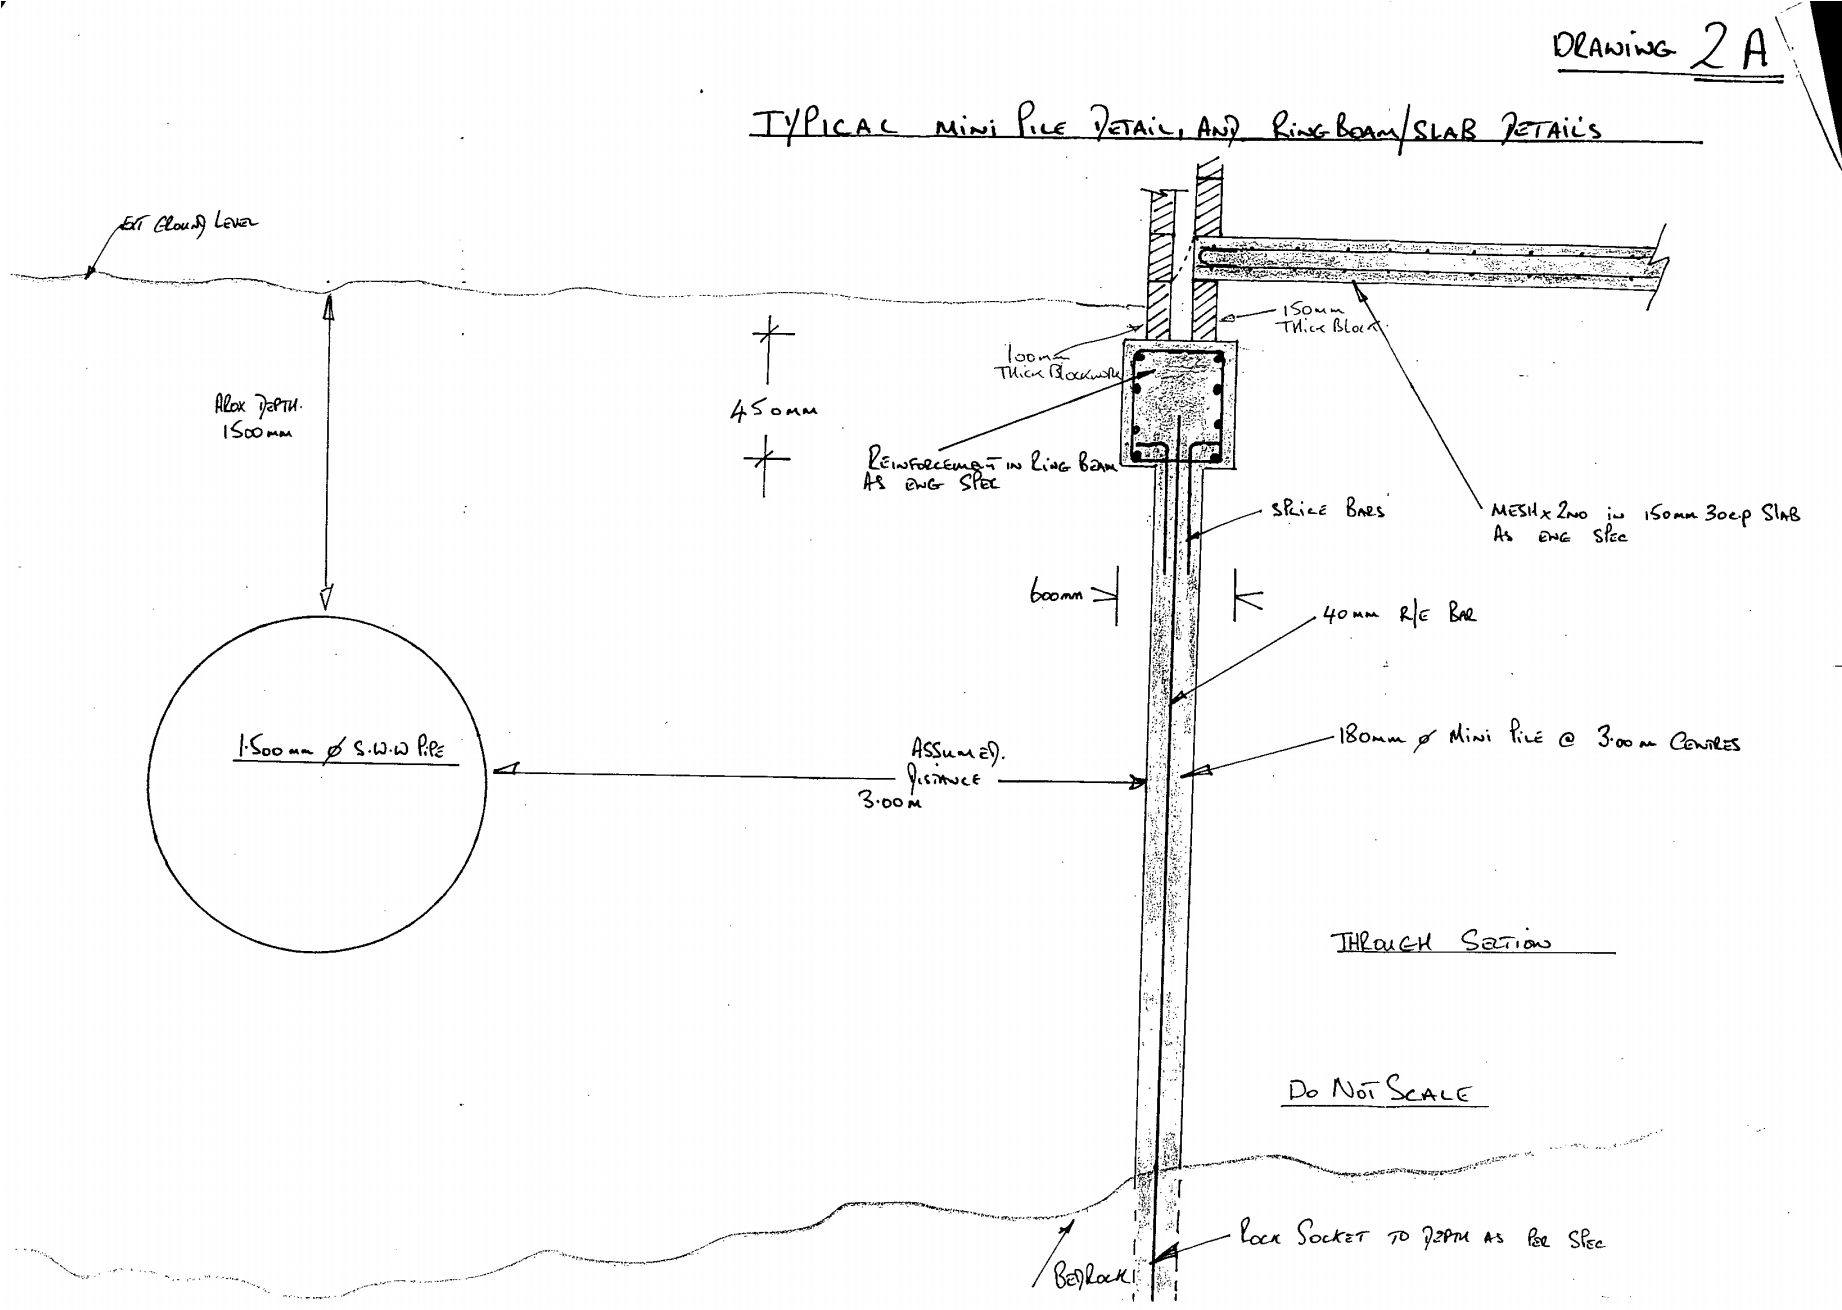 DRAWING 2A
TYPICAL MINI PILE DETAIL, AND RING BEAM/SLAB DETAILS
EXT GROUND LEVEL
150mm
THICK BLOCK
100mm
THICK BLOCKWORK
APROX DEPTH.
1500mm
450mm
REINFORCEMENT IN RING BEAM
AS ENG SPEC
SPLICE BARS
MESH x 2NO IN 150mm 30cp SLAB
AS ENG SPEC
600mm
40mm R/E BAR
1.500mm Ø S.W.W PIPE
ASSUMED.
DISTANCE
3.00M
180mm Ø MINI PILE @ 3.00m CENTRES
THROUGH SECTION
DO NOT SCALE
ROCK SOCKET TO DEPTH AS PER SPEC
BEDROCK